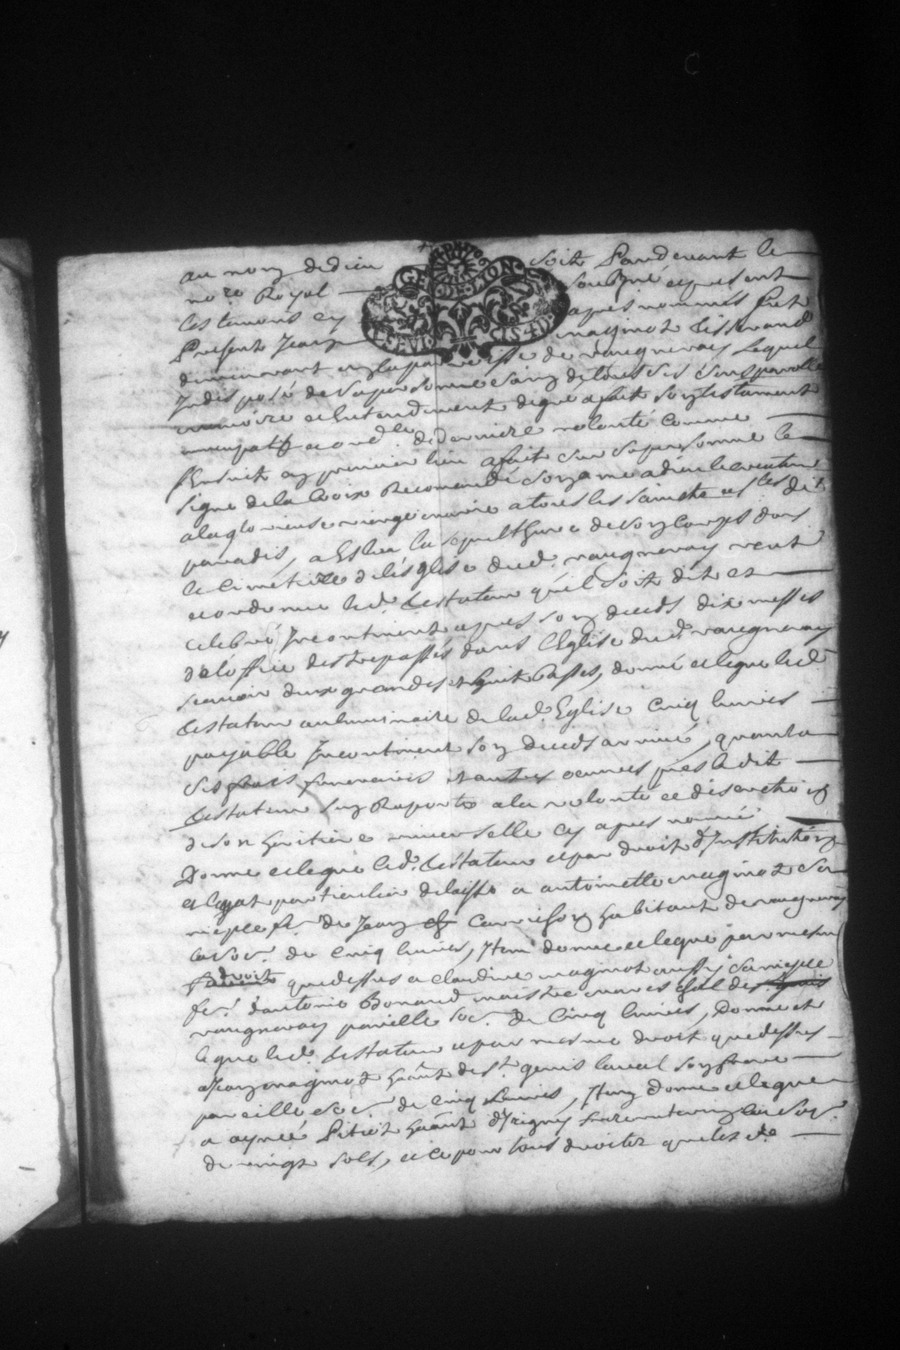 au nom de dieu soit Pardevant le
no.re Royal soubz.né et presents
les temoins cy apres nommés fut
Present Jean magmot tisserand
demeurant en la parroisse de vaugneray Lequel
Indisposé de sa personne sain de tous ses sens parolle
memoire et entendement de gré a fait son testament
nuncupatif et ord.e de derniere volonté comme
s'Ensuit en premier lieu a fait sur sa personne le
signe de la Croix Recomendé son ame a dieu le createur
a la glorieuse vierge marie a tous les saincts et s.tes de
paradis, a Esleu la sepulthure de son Corps dans
le Cimetiere de l'Eglise dud. vaugneray veut
et ordonne led. testateur qu'il soit dit et
celebré Incontinent apres son deceds dix messes
de l'office des trepassés dans l'Eglise dud. vaugneray
scavoir deux grandes et huit basses, donne et legue led.
testateur au luminaire de lad. Eglise Cinq livres
payable Incontinent son deceds arrivé, quant a
ses frais funeraires et autres oeuvres pies led.
testateur s'en Raporte a la volonté et discretion
de son heritiere universelle cy apres nommée
Donne et legue led. testateur et par droit d'Institution
et legat particulier delaisse a antoinette magmot sa
niepce f. de Jean habitant de vaugneray
la so. de Cinq livres, Item donne et legue par mesme
droit que dessus a claudine magmot aussy sa niepce
fe. d'antoine Bonand maistre
vaugneray pareille so. de Cinq livres, Donne et
legue led. testateur et par mesme droit que dessus
a Jean magmot ha.nt de s.t genis laval son frere
pareille so. de Cinq Livres, Item Donne et legue
a aymé ha.nt d'Irigny
de vingt sols, et ce pour tous droits